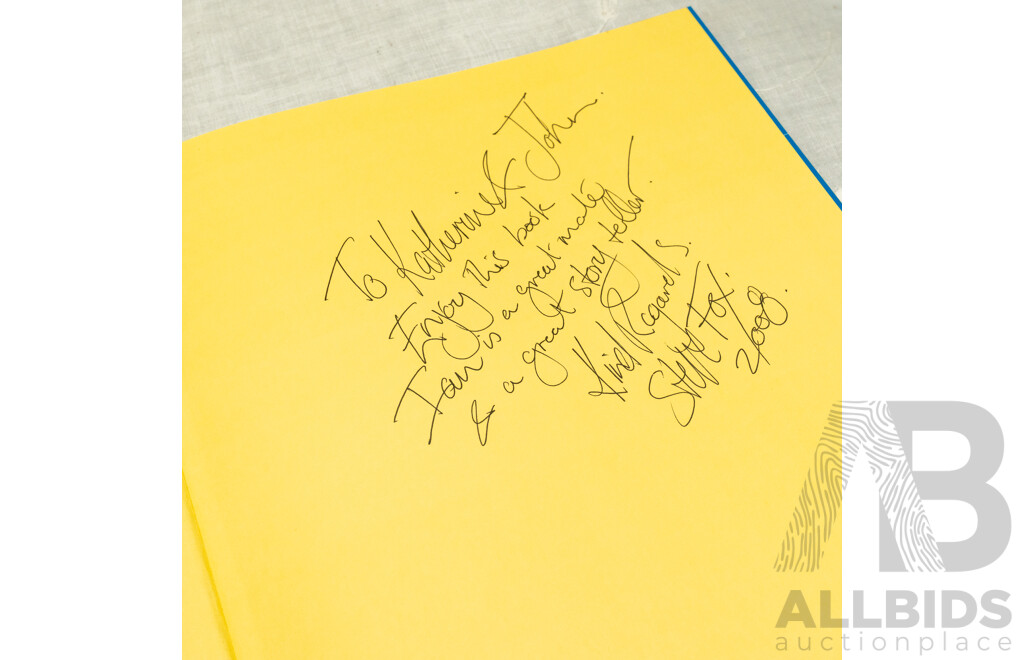 To Katherine & John.
Enjoy this book
Ian is a great mate
& a great story teller.
Kind Regards.
Steffi Fox.
2008.
ALLBIDS
auctionplace